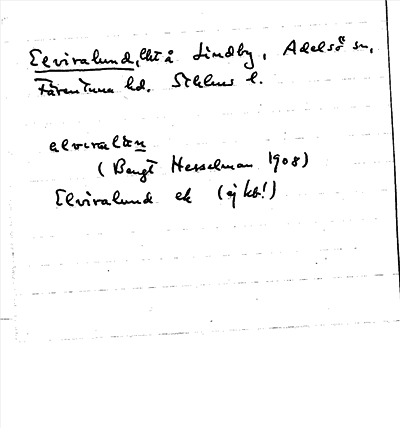 Elviralund, lht å Lindby, Adelsö sn,
Färentuna hd. Sthlms l.
elviralún
(Bengt Hesselman 1908)
Elviralund ek (ej kb!)